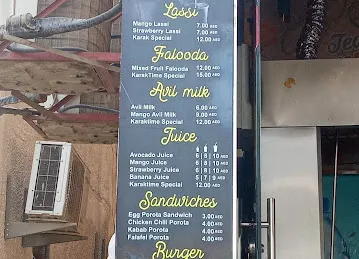 Lassi
Mango Lassi 7.00 AED
Strawberry Lassi 7.00 AED
Karak Special 12.00 AED
Falooda
Mixed Fruit Falooda 12.00 AED
KarakTime Special 15.00 AED
Avil milk
Avil Milk 6.00 AED
Mango Avil Milk 9.00 AED
Karaktime Special 12.00 AED
Juice
Avocado Juice 6 8 10 AED
Mango Juice 6 8 10 AED
Strawberry Juice 6 8 10 AED
Banana Juice 5 7 9 AED
Karaktime Special 12.00 AED
Sandwiches
Egg Porota Sandwich 3.00 AED
Chicken Chili Porota 4.00 AED
Kabab Porota 4.00 AED
Falafel Porota 4.00 AED
Burger